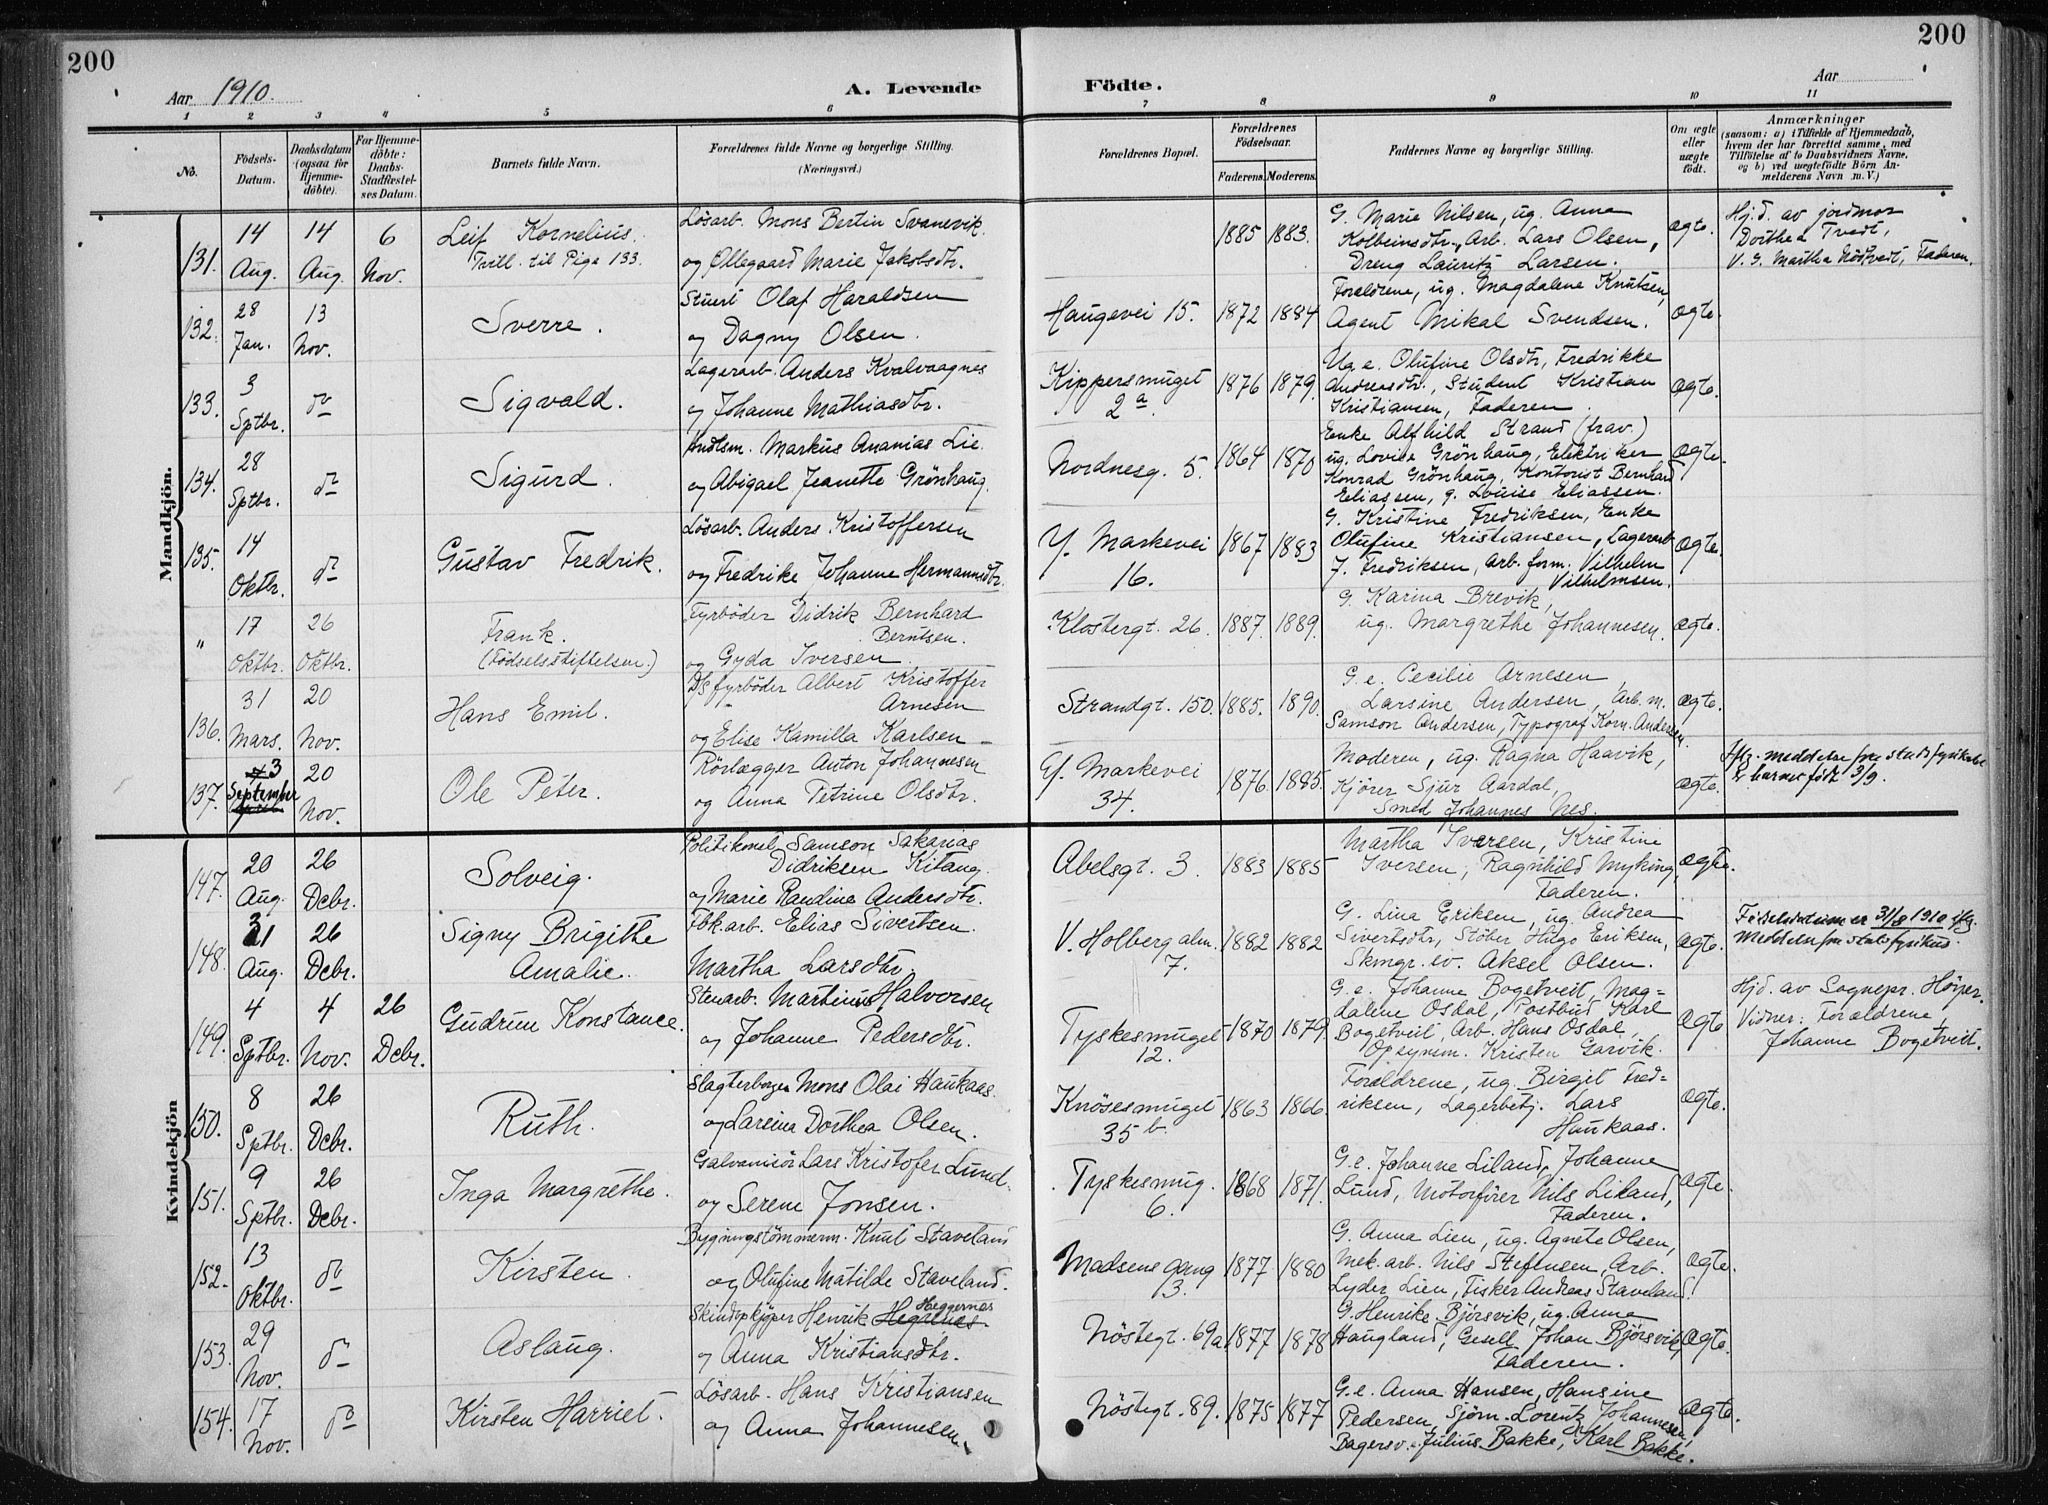 200
200
Aar 1910.
A. Levende
Födte.
Aar
1 2 3 4 5 6 7 8 9 10 11
No.
Födsels-
Datum.
Daabsdatum
(ogsaa for
Hjemme-
döbte).
For Hjemme-
döbte:
Daabs-
Stadfæstel-
ses Datum.
Barnets fulde Navn.
Forældrenes fulde Navne og borgerlige Stilling.
(Næringsvei.)
Forældrenes Bopæl.
Forældrenes
Födselsaar.
Faderens. Moderens.
Faddernes Navne og borgerlige Stilling.
Om ægte
eller
uægte
födt.
Anmærkninger
(saasom: a) i Tilfælde af Hjemmedaab,
hvem der har forrettet samme, med
Tilföielse af to Daabsvidners Navne,
og b) ved uægtefödte Börn An-
melderens Navn m. V.)
Mandkjön.
131. 14 Aug. 14 Aug. 6 Nov.
Leif Kornelius.
Tvill. til Pige 133.
Lösarb. Mons Bertin Svanevik
og Ollegaard Marie Jakobsdtr.
1885 1883.
G. Marie Nilsen, ug. Anna
Kolbeinsdtr., Arb. Lars Olsen,
Dreng Lauritz Larsen.
ægte.
Hj.d. av jordmor
Dorthea Tvedt,
V. G. Martha Nödtvedt, Faderen.
132. 28 Jan. 13 Nov.
Sverre.
Stuert Olaf Haraldsen
og Dagny Olsen.
Haugevei 15.
1872 1884
Forældrene, ug. Magdalene Knutsen,
Agent Mikal Svendsen.
ægte.
133. 3 Sptbr. do
Sigvald.
Lagerarb. Anders Kvalvaagnes
og Johanne Mathiasdtr.
Kippersmuget
2a.
1876 1879.
Ug.e. Olufine Olsdtr, Fredrikke
Andreasdtr., Student Kristian
Kristiansen, Faderen.
ægte.
134. 28 Sptbr. do
Sigurd.
Handlsm. Markus Ananias Lie
og Abigael Jeanette Grönhaug.
Nordnesg. 5.
1864 1870
Enke Alfhild Strand (frav.)
ug. Lovise Grönhaug, Elektriker
Konrad Grönhaug, Kontorist Bernhard
Eliassen, g. Louise Eliassen.
ægte.
135. 14 Oktbr. do
Gustav Fredrik.
Lösarb. Anders Kristoffersen
og Fredrike Johanne Hermannsdtr.
Y. Markevei
16.
1867 1883
G. Kristine Fredriksen, Enke
Olufine Kristiansen, Lagerarb.
J. Fredriksen, Arb.form. Vilhelm
Vilhelmsen.
ægte.
" 17 Oktbr. 26 Oktbr.
Frank.
(Födselsstiftelsen.)
Fyrböder Didrik Bernhard
Berntsen.
og Gyda Iversen.
Klostergt. 26.
1887. 1889.
G. Karina Brevik,
ug. Margrethe Johannesen.
ægte.
136. 31 Mars. 20 Nov.
Hans Emil.
D/S fyrböder Albert Kristoffer
Arnesen
og Elise Kamilla Karlsen
Strandgt. 150.
1885. 1890.
G.e. Cecilie Arnesen
Larsine Andersen, Arb.m.
Samson Andersen, Typograf Korn. Andersen.
ægte.
137. 3 September 20 Nov.
Ole Peter.
Rörlægger Anton Johannesen
og Anna Petrine Olsdtr.
Y. Markevei
34.
1876. 1885.
Moderen, ug. Ragna Haavik,
Kjörer Sjur Aardal,
Smed Johannes Nes.
ægte.
Iflg. meddelse fra stadsfysikatet
er barnet födt 3/9.
Kvindekjön
147. 20 Aug. 26 Debr.
Solveig.
Politikonst. Samson Sakarias
Didriksen Kitang.
og Marie Randine Andersdtr.
Abelsgt. 3.
1883 1885
Martha Iversen, Kristine
Iversen, Ragnhild Myking,
Faderen.
ægte.
148. 31 Aug. 26 Debr.
Signy Brigitte
Amalie.
Fbk.arb. Elias Sivertsen.
Martha Larsdtr
V. Holberg alm.
7.
1882 1882
G. Lina Eriksen, ug. Andrea
Sivertsdtr, Stöber Hugo Eriksen,
Skmgr.sv. Aksel Olsen.
ægte.
Födselsdatum er 31/8 1910 iflg.
Meddelse fra stadsfysikus.
149. 4 Sptbr. 4 Nov. 26 Debr.
Gudrun Konstance.
Stenarb. Martinius Halvorsen
og Johanne Pedersdtr.
Tyskesmuget
12.
1870 1879.
G.e. Johanne Bogetveit, Mag=
dalene Osdal, Postbud Karl
Bogetveit, Arb. Hans Osdal,
Opsynsm. Kristen Garvik.
ægte
Hjd. av Sognepr. Höyer.
Vidner: Forældrene,
Johanne Bogetveit.
150. 8 Sptbr. 26 Debr.
Ruth.
Slagterborger Mons Olai Haukaas.
og Larsina Dorthea Olsen.
Knösesmuget
35 b.
1863 1866.
Forældrene, ug. Birgit Fred=
riksen, Lagerbetj. Lars
Haukaas.
ægte.
151. 9 Sptbr. 26 Debr.
Inga Margrethe.
Galvanisör Lars Kristofer Lund
og Serene Jonsen.
Tyskesmug.
6.
1868 1871.
G.e. Johanne Liland, Johanne
Lund, Motorförer Nils Liland,
Faderen.
ægte.
152. 13 Oktbr. do
Kirsten.
Bygningstömmerm. Knut Staveland
og Olufine Matilde Staveland.
Madsens gang
13.
1877 1880
G. Anna Lien, ug. Agnete Olsen,
Mek.arb. Nils Stefensen, Arb.
Lyder Lien, Fisker Andreas Staveland.
ægte.
153. 29 Nov. do
Aslaug.
Skindopkjöper Henrik Hegrenes. Hæggernes
og Anna Kristiansdtr.
Nöstegt. 69a
1877 1878
G. Henrike Björsvik, ug. Anna
Haugland, Gesell Johan Björsvik,
Faderen.
ægte.
154. 17 Nov. do
Kirsten Harriet.
Lösarb. Hans Kristiansen
og Anna Johannesen.
Nöstegt. 89.
1875 1877
G.e. Anna Hansen, Hansine
Pedersen, Sjöm. Lorentz Johannesen,
Bagersv. Julius Bakke, Karl Bakke.
ægte.